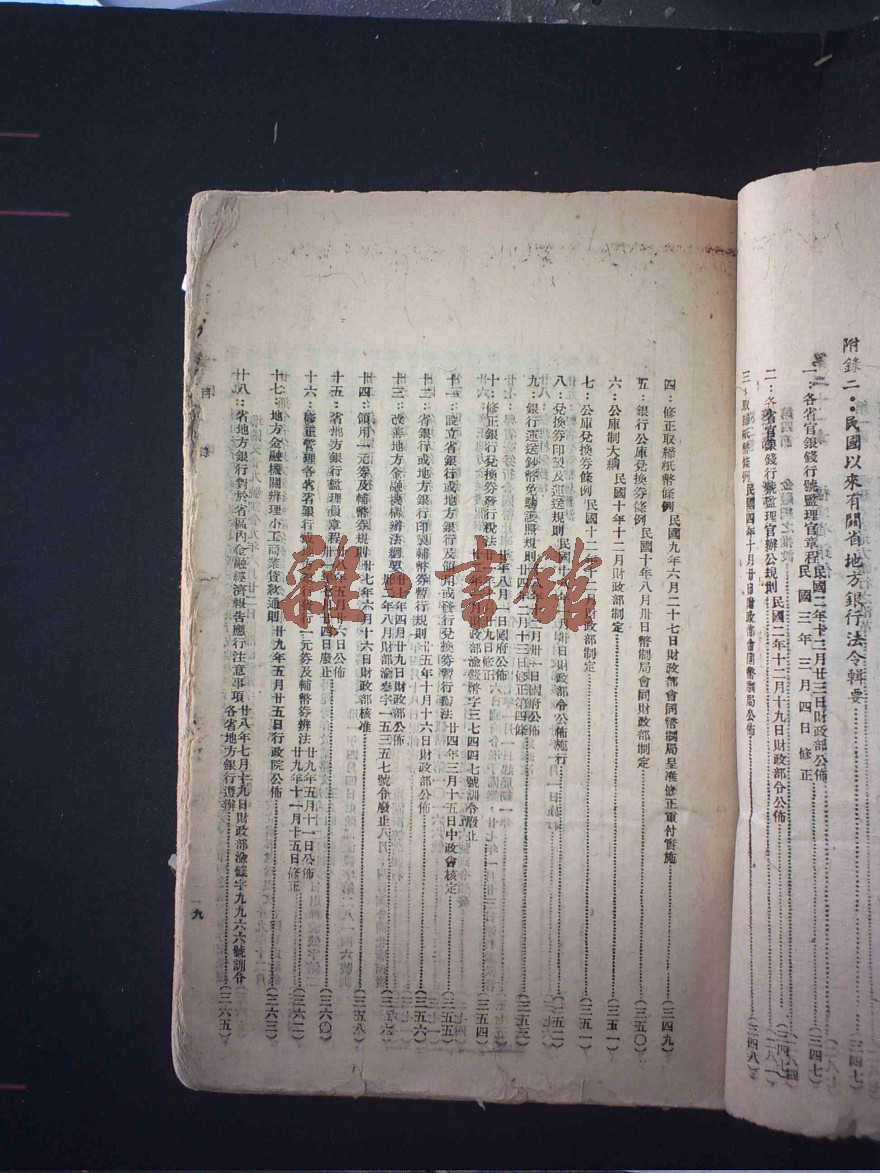 附錄二：民國以來有關省地方銀行法令輯要……(三四七)
一：各省官銀錢行號監理官章程民國二年十二月廿三日財政部公佈……(三四七)
民國三年三月四日修正
二：各省官銀錢行號監理官辦公規則民國二年十二月十九日財政部令公佈……(三四七)
三：取締紙幣條例民國四年十月廿日財政部會同幣制局公佈……(三四八)
四：修正取締紙幣條例民國九年六月二十七日財政部會同幣制局呈准修正重付實施……(三四九)
五：銀行公庫兌換券條例民國十年八月卅日幣制局會同財政部制定……(三五〇)
六：公庫制大綱民國十年十二月財政部制定……(三五一)
七：公庫兌換券條例民國十二年十二月財政部制定……(三五一)
八：兌換券印製及運送規則民國十八年一月卅日財政部令公佈施行……(三五二)
九：銀行運送鈔幣免驗護照規則
十：修正銀行兌換券發行稅法
十一：設立省銀行或地方銀行及領用或發行兌換券暫行辦法廿四年三月十五日中政會核定……(三五五)
十二：省銀行或地方銀行印製輔幣券暫行規則廿五年十月十六日財政部公佈……(三五六)
十三：改善地方金融機構辦法綱要廿七年四月廿九日財政部公佈
十四：領用一元券及輔幣券規則廿七年六月十六日財政部核准……(三五八)
十五：省地方銀行監理員章程廿八年五月廿六日公佈……(三六〇)
十六：修正管理各省省銀行或地方銀行發行一元券及輔幣券辦法廿九年五月十一日公佈
廿九年十一月十五日修正……(三六二)
十七：地方金融機關辦理小工商業貸款通則廿九年五月廿五日行政院公佈……(三六三)
十八：省地方銀行對於省區內金融經濟報告應行注意事項廿八年七月十九日財政部渝錢字九九六六號訓令各省地方銀行遵辦……(三六五)
目錄
一九
雜·書館